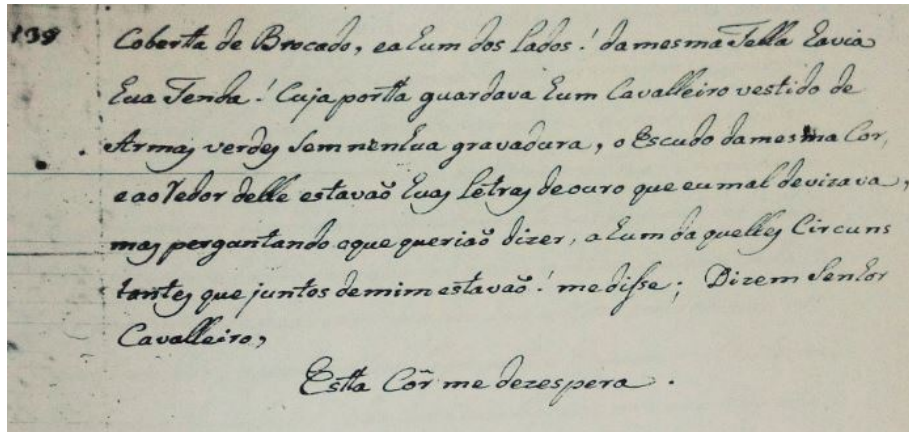 138 Coberta de Brocado, ea hum dos Lados! damesma Tella havia
hua Tenda! Cuja portta guardava hum Cavalleiro vestido de
Armas verdes sem nenhua gravadura, o Escudo damesma Cor,
e ao Redor delle estavaõ huas Letras de ouro que eu mal devizava,
mas perguntando aque queriaõ dizer, a hum daquelles Circuns
tantes que juntos demim estavaõ! me disse; Dizem Senhor
Cavalleiro,
Estta Côr me dezespera.